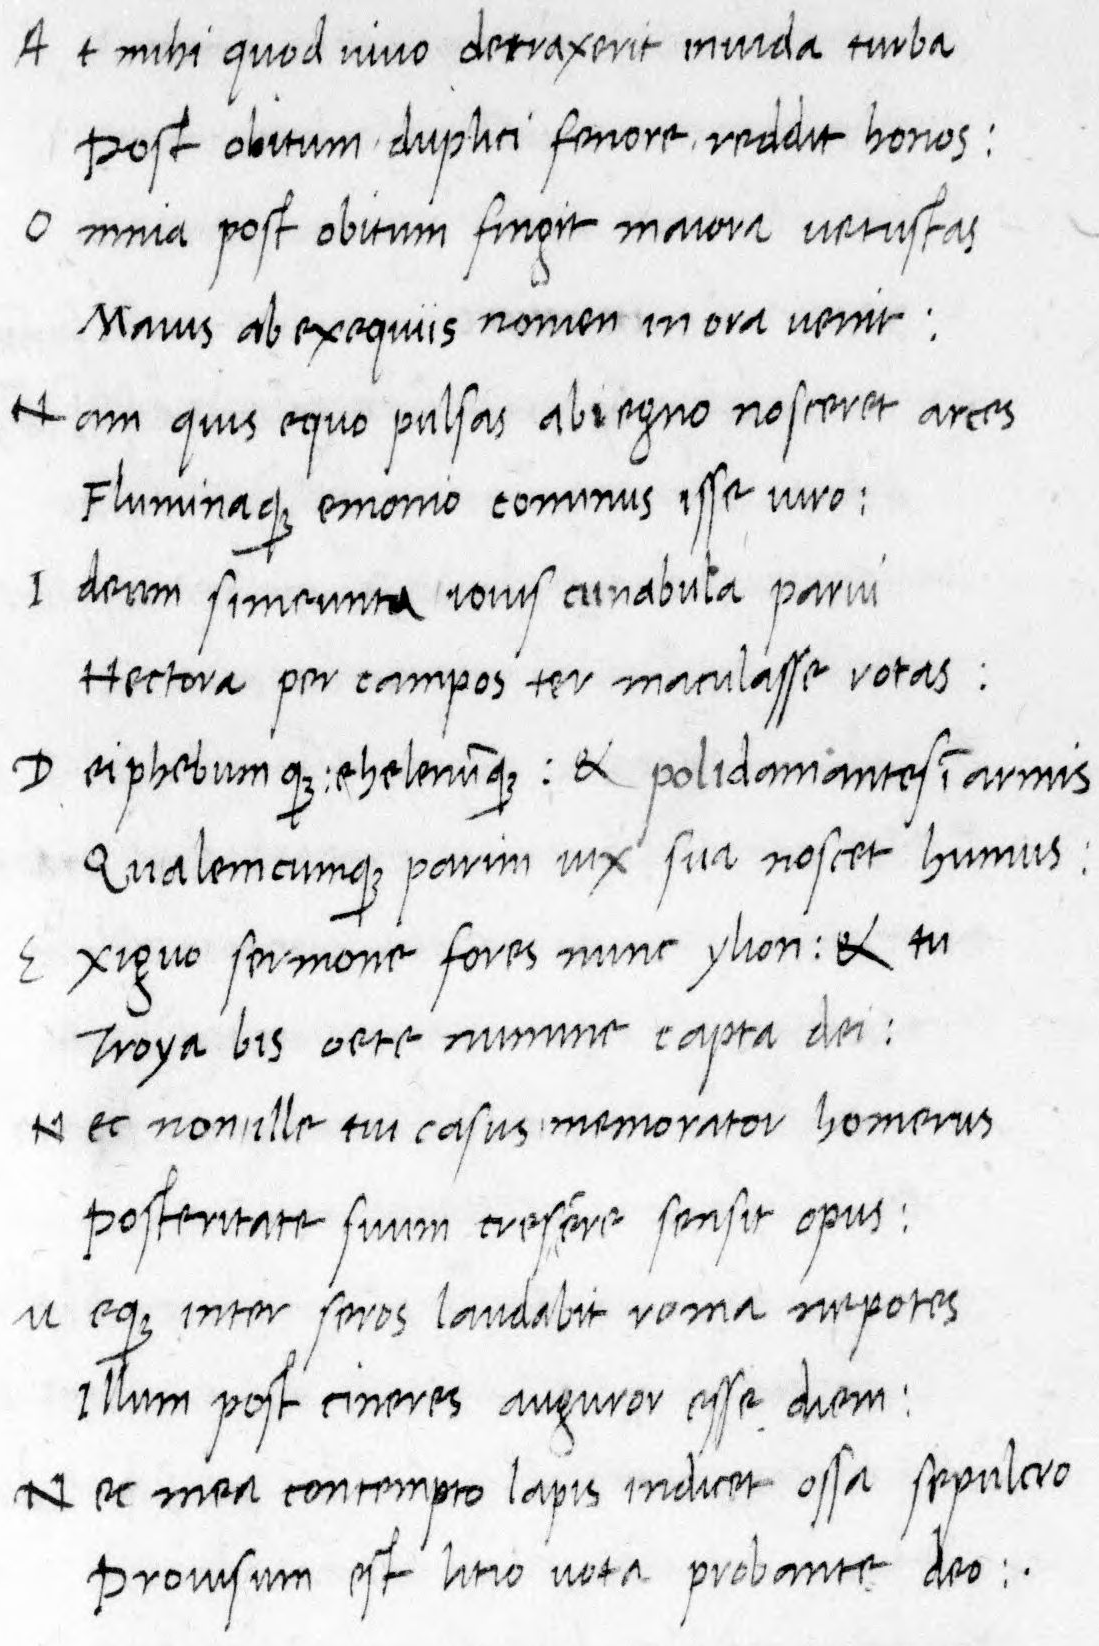 A t mihi quod uiuo detraxerit inuida turba
Post obitum duplici fenore reddit honos:
O mnia post obitum fingit maiora uetustas
Maius ab exequiis nomen in ora uenit:
N am quis equo pulsas abiegno nosceret arces
Fluminaqꝫ emonio cominus isse uiro:
I deum simeunta iouis cunabula parui
Hectora per campos ter maculasse rotas:
D eiphebumqꝫ: ehelenūqꝫ: & polidamantes ī armis
Qualemcumqꝫ parim uix sua noscet humus:
E xiguo sermone fores nunc ylion: & tu
Troya bis oete numine capta dei:
N ec non ille tui casus memorator homerus
Posteritate suum crescere sensit opus:
M eqꝫ inter seros laudabit roma nepotes
Illum post cineres auguror esse diem:
N ec mea contempto lapis indicet ossa sepulcro
Prouisum est litio uota probante deo:.